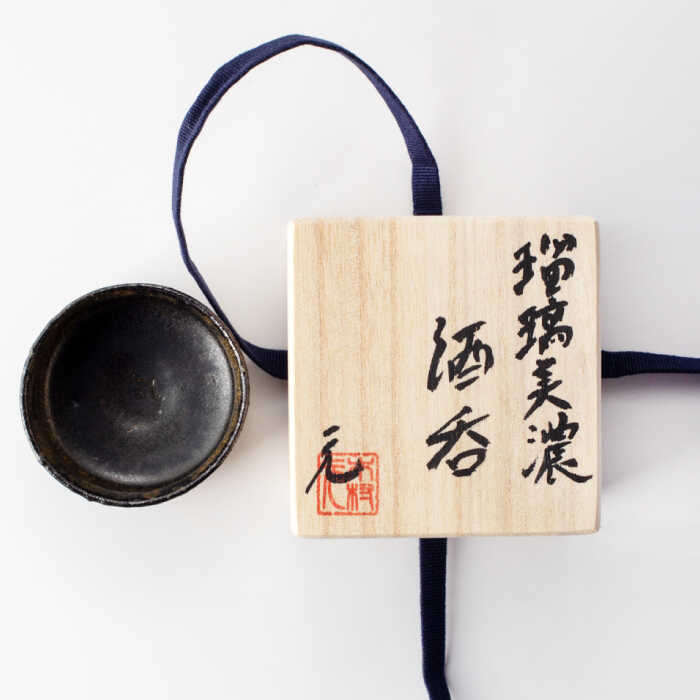 瑠璃美濃
酒呑
元